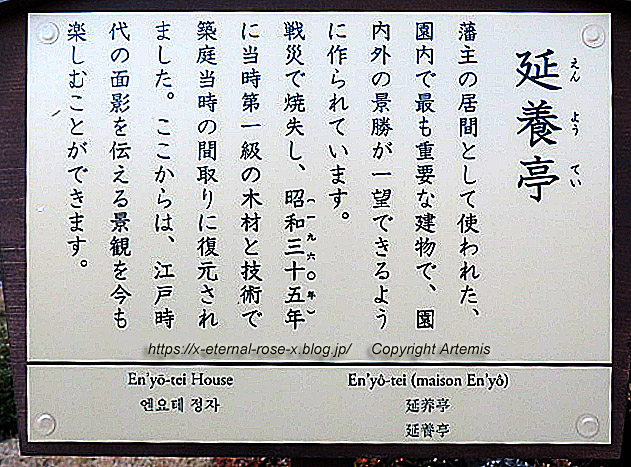 延養亭
えん よう てい
藩主の居間として使われた、
園内で最も重要な建物で、園
内外の景勝が一望できるよう
に作られています。
戦災で焼失し、昭和三十五年
(一九六〇年)
に当時第一級の木材と技術で
築庭当時の間取りに復元され
ました。ここからは、江戸時
代の面影を伝える景観を今も
楽しむことができます。
https://x-eternal-rose-x.blog.jp/ Copyright Artemis
En'yō-tei House
엔요테 정자
En'yô-tei (maison En'yô)
延养亭
延養亭